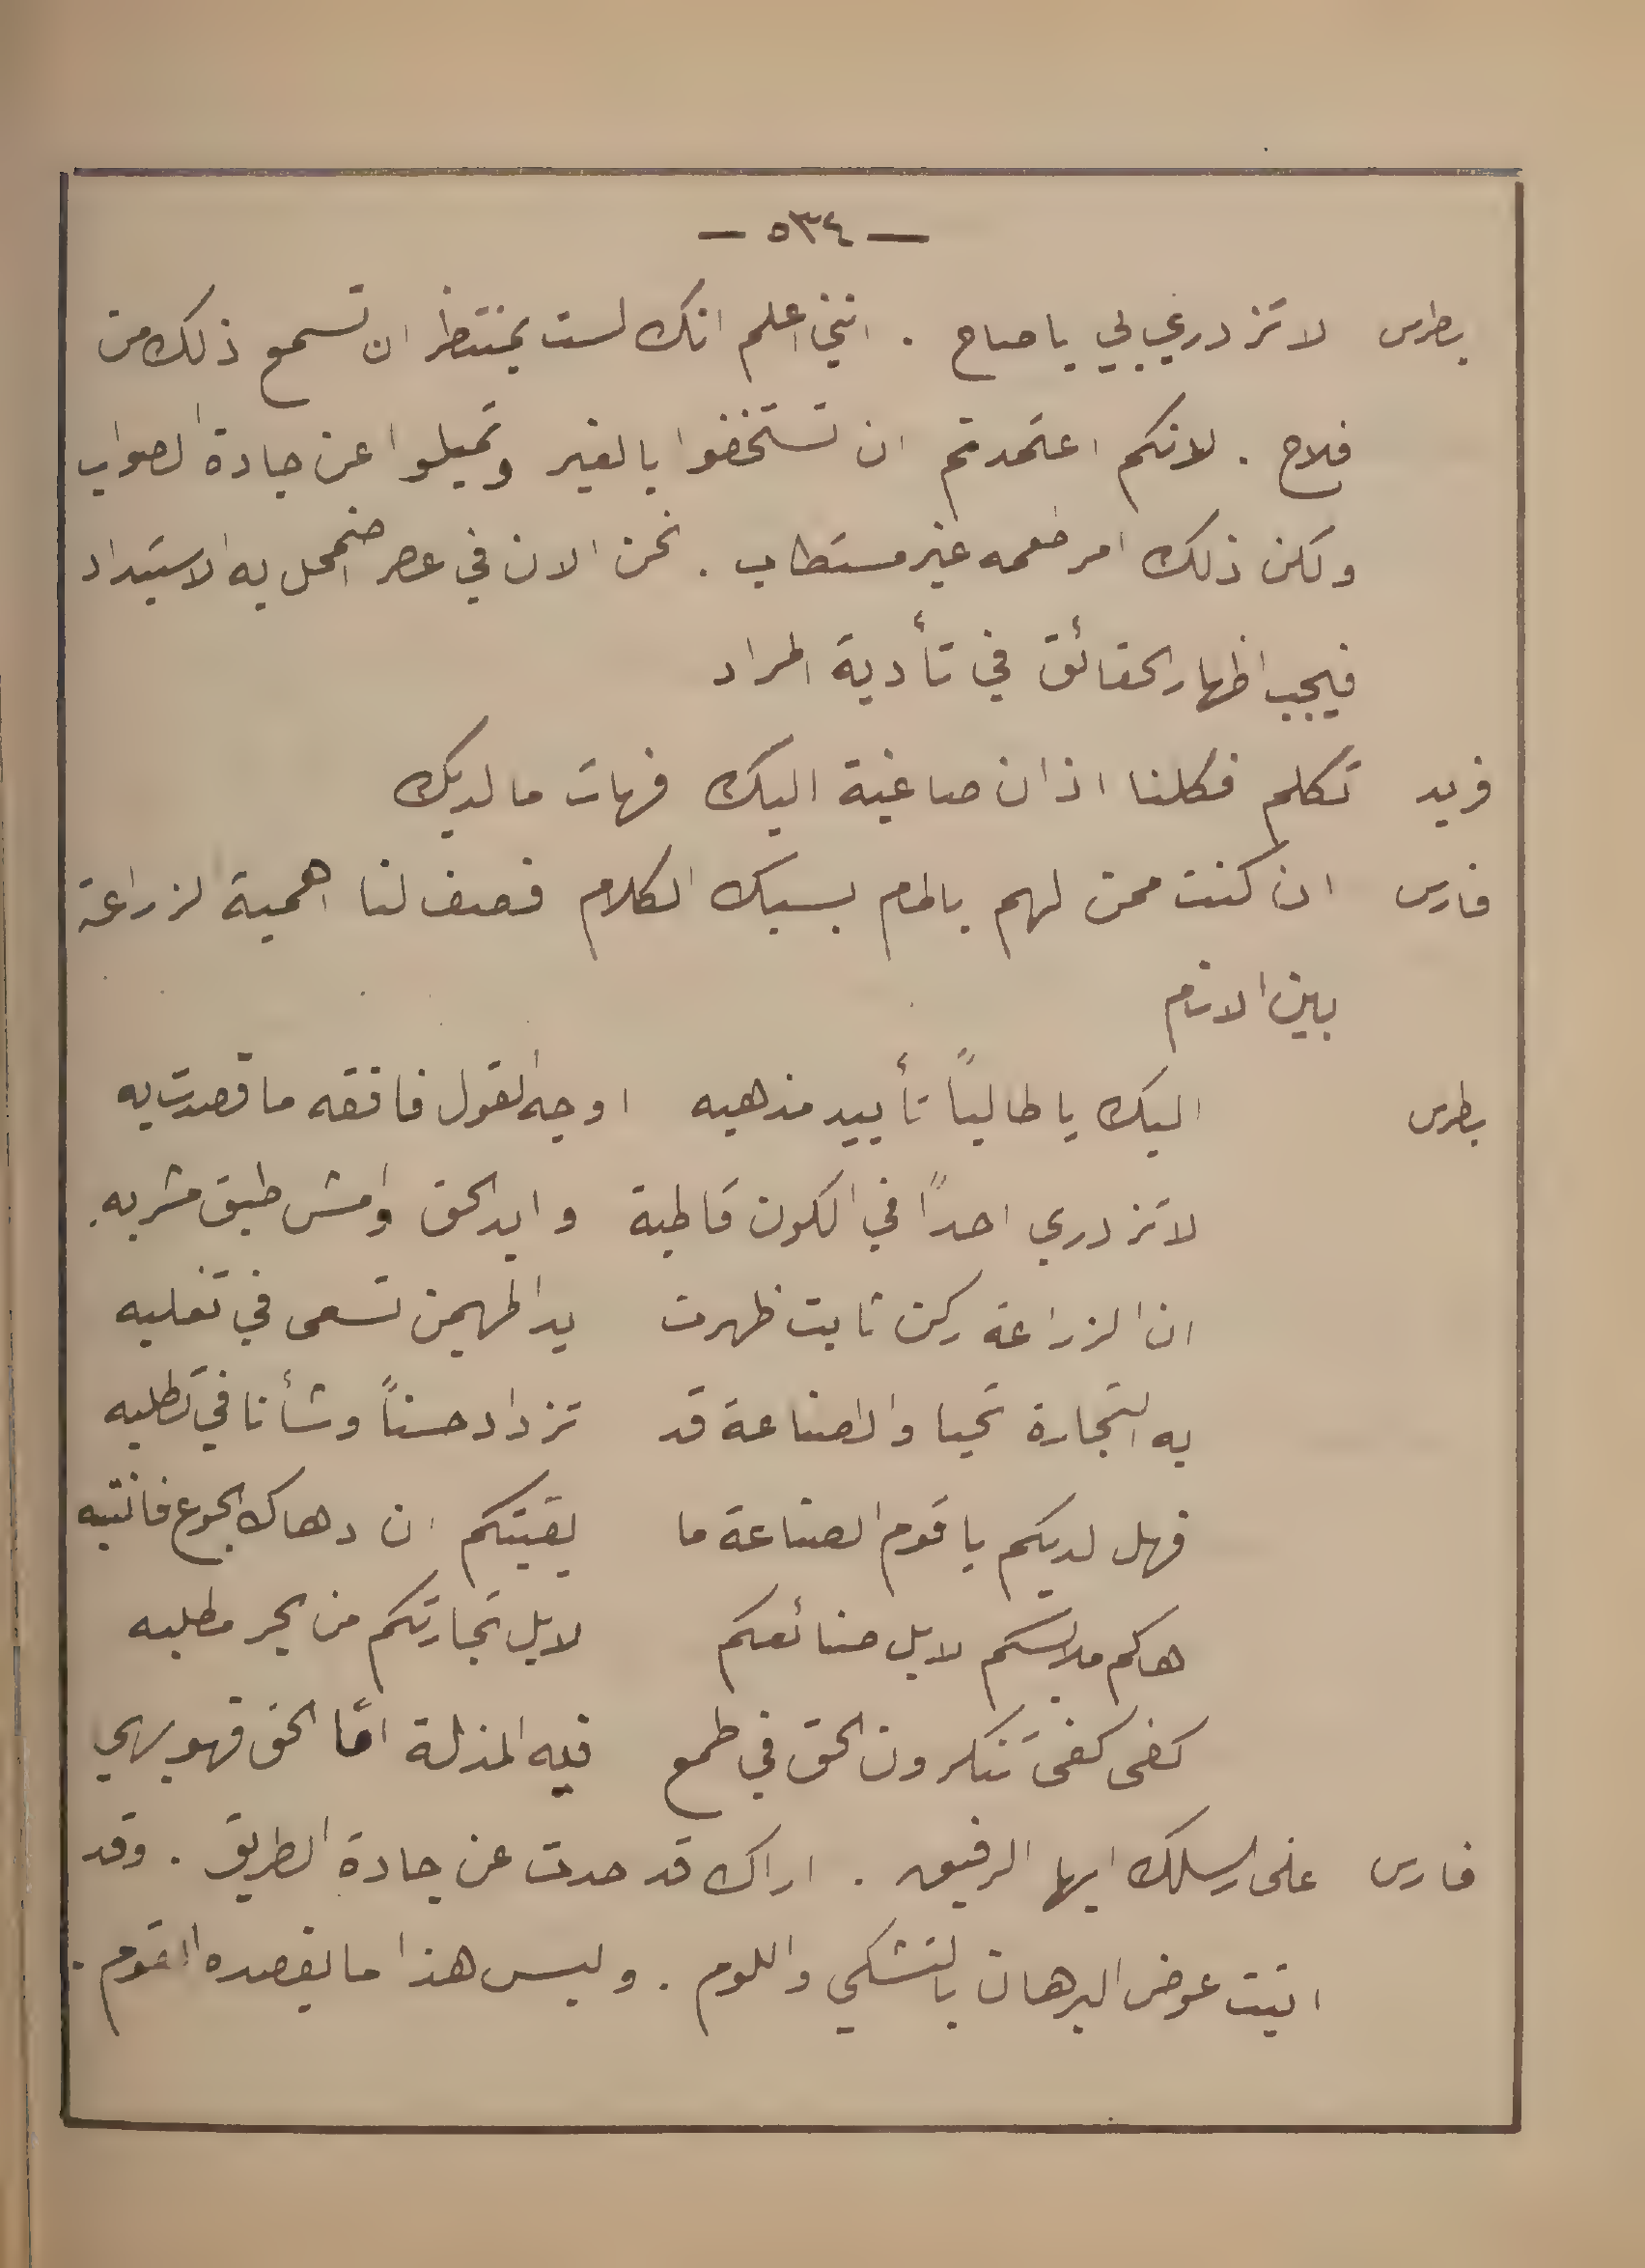 — ٥٣٤ —
بطرس لا تزدري بي يا صاح . انني اعلم انك لست بمنتظر ان تسمع ذلك من
فلاح . لانكم اعتمدتم ان تستخفوا بالغير وتميلوا عن جادة الصواب
ولكن ذلك امر طعمه غير مستطاب . نحن الان في عصر اضمحل به الاستبداد
فيجب اظهار الحقائق في تأدية المراد
فريد تكلم فكلنا اذان صاغية اليك فهات ما لديك
فارس ان كنت ممن لهم بالمام بسبك الكلام فصف لنا اهمية الزراعة
بين الانام
بطرس اليك يا طالباً تأييد مذهبه اوجه القول فافقه ما قصدت به
لا تزدري احداً في الكون قاطبة وايد الحق وامش طبق مشربه.
ان الزراعة ركن ثابت ظهرت يد المهيمن تسعى في تغلبه
به التجارة تحيا والصناعة قد تزداد حسناً وشأنا في تطلبه
فهل لديكم يا قوم الصناعة ما يقيتكم ان دهاك الجوع فانتبه
هاكم ملابسكم لا بل صنائعكم لا بل تجارتكم من بحر مطلبه
كفى كفى تنكرون الحق في طمع فيه المذلة امّا الحق فهو بهي
فارس على رسلك ايها الرفيق . اراك قد حدت عن جادة الطريق . وقد
اتيت عوض البرهان بالتشكي واللوم . وليس هذا ما يقصده القوم .